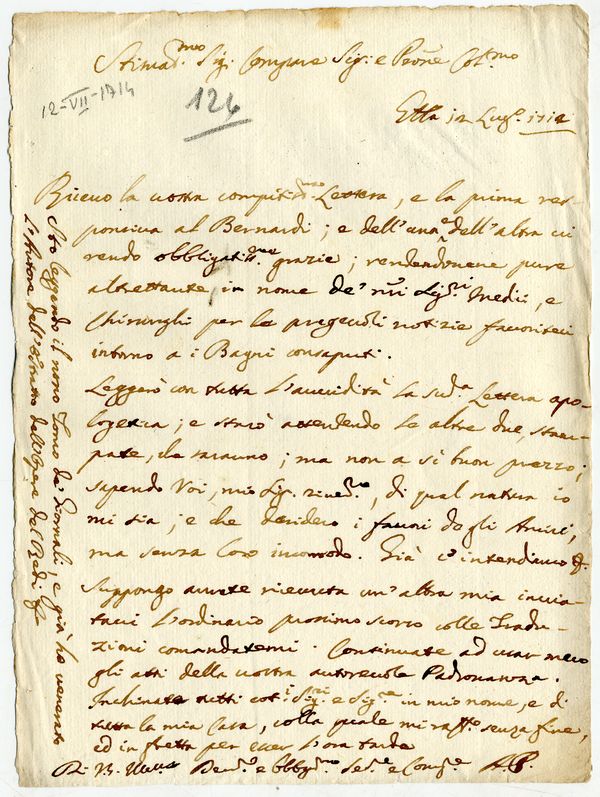 Stimad.mo Sig.r Compare Sig.r e Prōne Col.mo
12-VII-1714
124
12 Lug.o 1714
Riceuo la uostra compitiss.ma Lettera, e la prima res-
ponsiua al Bernardi; e dell'una, e dell'altra ui
rendo obbligatis.me grazie; rendendouene pure
altrettante, in nome de' Sig.ri Medici, e
Chirurghi per le pregeuoli notizie fauoriteci
intorno a i Bagni consaputi.
Leggerò con tutta l'auuidità la sud.a Lettera apo-
logetica; e starò attendendo le altre due, stam-
pate, che saranno; ma non a sì buon prezzo;
sapendo Voi, mio Sig.r riued.mo, di qual natura io
mi sia; e che desidero i fauori dagli Amici,
ma senza loro incomodo. Già c'intendiamo &.
Suppongo aurete riceuuta un'altra mia inuia-
taui l'ordinario prossimo scorso colle Tradu-
zioni comandatemi. Continuate ad usar meco
gli atti della uostra autoreuole Padronanza.
Inchinate tutti cot.i Sig.ri e Sig.re in mio nome, e di
tutta la mia Casa, colla quale mi raff.o senza fine,
ed in fretta per esser l'ora tarda
Di V. S. Ill.ma Deu.mo e Obblig.mo Se.re e Comp.e
Sto leggendo il nono Tomo de' Giornali, e già ho uenerato
l'Autore dell'Estratto dell'Opere del Redi &